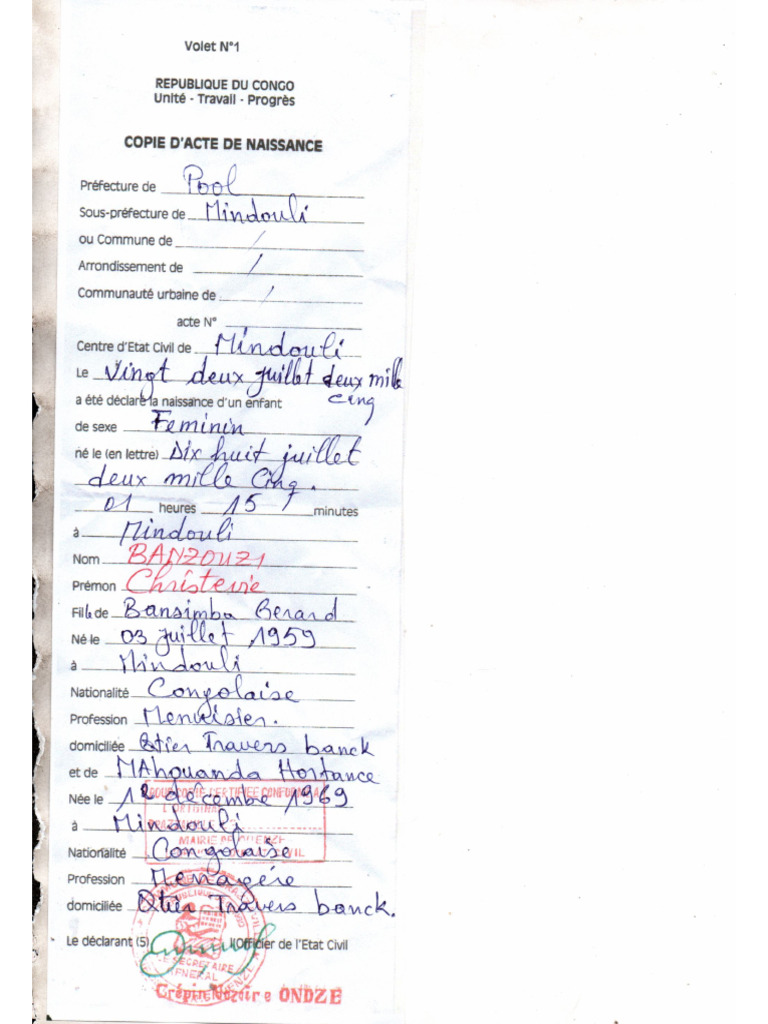 Volet N°1
REPUBLIQUE DU CONGO
Unité - Travail - Progrès
COPIE D'ACTE DE NAISSANCE
Préfecture de Pool
Sous-préfecture de Mindouli
ou Commune de /
Arrondissement de /
Communauté urbaine de /
acte N°
Centre d'Etat Civil de Mindouli
Le Vingt deux juillet deux mille
a été déclaré la naissance d'un enfant cinq
de sexe Feminin
né le (en lettre) Dix huit juillet
deux mille Cinq.
01 heures 15 minutes
à Mindouli
Nom BANZOUZI
Prémon Christevie
Fille de Bansimba Berard
Né le 03 juillet 1959
à Mindouli
Nationalité Congolaise
Profession Menuisier.
domiciliée Qtier Travers banck
et de MAhouanda Hortance
Née le 12 décembre 1969
à Mindouli
Nationalité Congolaise
Profession Menagère
domiciliée Qtier Travers banck.
Le déclarant (5) l'Officier de l'Etat Civil
LE SECRETAIRE
GENERAL
ONDZE